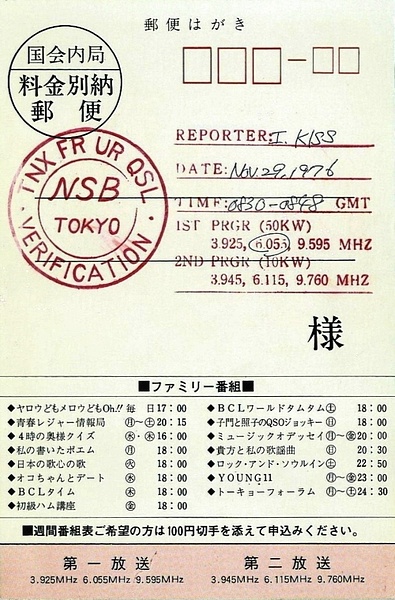 郵便はがき
国会内局
料金別納
郵便
TNX FR UR QSL
NSB
TOKYO
VERIFICATION
REPORTER: I. KISS
DATE: Nov 29, 1976
TIMF: 0830-0848 GMT
1ST PRGR (50KW)
3.925, 6.055, 9.595 MHZ
2ND PRGR (10KW)
3.945, 6.115, 9.760 MHZ
様
■ファミリー番組■
◆ヤロウどもメロウどもOh.!! 毎 日 17:00
◆青春レジャー情報局 ㊊〜㊏ 20:15
◆4時の奥様クイズ ㊌・㊍ 16:00
◆私の書いたポエム ㊊ 18:00
◆日本の歌心の歌 ㊋ 18:00
◆オコちゃんとデート ㊌ 18:00
◆BCLタイム ㊍ 18:00
◆初級ハム講座 ㊎ 18:00
◆BCLワールドタムタム ㊏ 18:00
◆子門と照子のQSOジョッキー ㊐ 18:00
◆ミュージックオデッセイ ㊊〜㊎ 20:00
◆貴方と私の歌謡曲 ㊐ 20:30
◆ロック・アンド・ソウルイン ㊏ 22:50
◆YOUNG11 ㊊〜㊎ 23:00
◆トーキョーフォーラム ㊊〜㊏ 24:30
■週間番組表ご希望の方は100円切手を添えて申込みください。
第一放送 第二放送
3.925MHz 6.055MHz 9.595MHz 3.945MHz 6.115MHz 9.760MHz